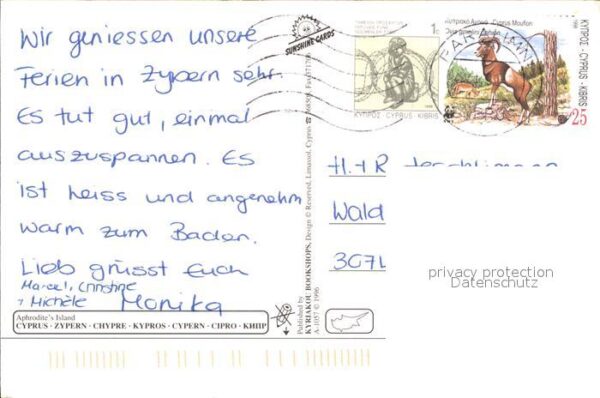 Wir geniessen unsere
Ferien in Zypern sehr.
Es tut gut, einmal
auszuspannen. Es
ist heiss und angenehm
warm zum Baden.
Lieb grüsst Euch
Marcel, Christine
Michèle Monika
Aphrodite's Island
CYPRUS · ZYPERN · CHYPRE · KYPROS · CYPERN · CIPRO · КИПР
SUNSHINE CARDS
Published by
KYRIAKOU BOOKSHOPS, Design © Reserved, Limassol, Cyprus
A-1057 © 1996
1c
ΚΥΠΡΟΣ · CYPRUS · KIBRIS
Κυπριακό Αγρινό · Cyprus Mouflon
ΚΥΠΡΟΣ · CYPRUS · KIBRIS
25
H.+R
Wald
3071
privacy protection
Datenschutz